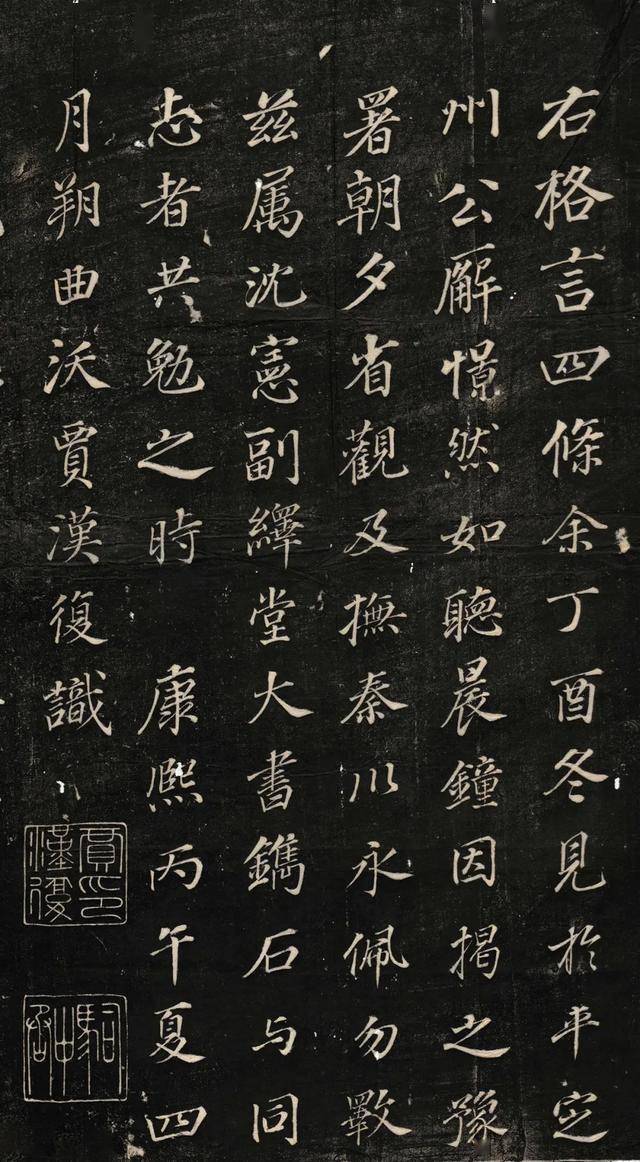 右格言四條余丁酉冬見於平定
州公廨憬然如聽晨鐘因揭之豫
署朝夕省觀及撫秦川永佩勿斁
兹属沈憲副繹堂大書鐫石与同
志者共勉之時 康熈丙午夏四
月朔曲沃賈漢復識
賈漢復印